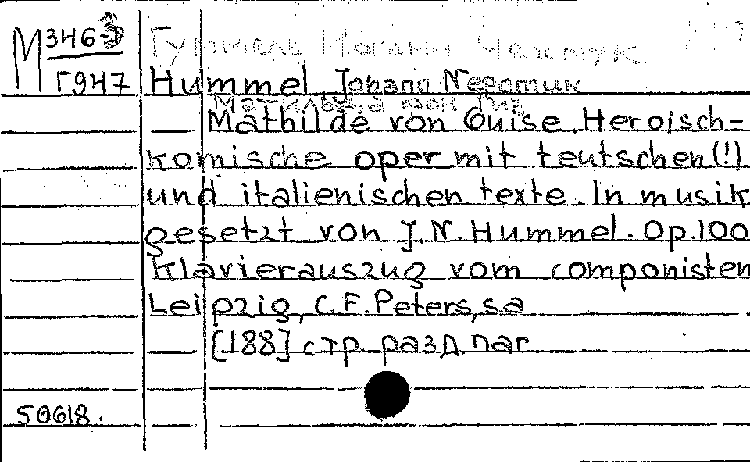 М 346-3
Г947
Гуммель Иоганн Непомук
Hummel, Johann Nepomuk
Матильда фон Гиз
Mathilde von Guise. Heroisch-
komische oper mit teutschen(!)
und italienischen texte. In musik
gesetzt von J.N. Hummel. Op.100
Klavierauszug vom componisten
Leipzig, C.F. Peters, s.a
[188] стр. разд. паг
50618.